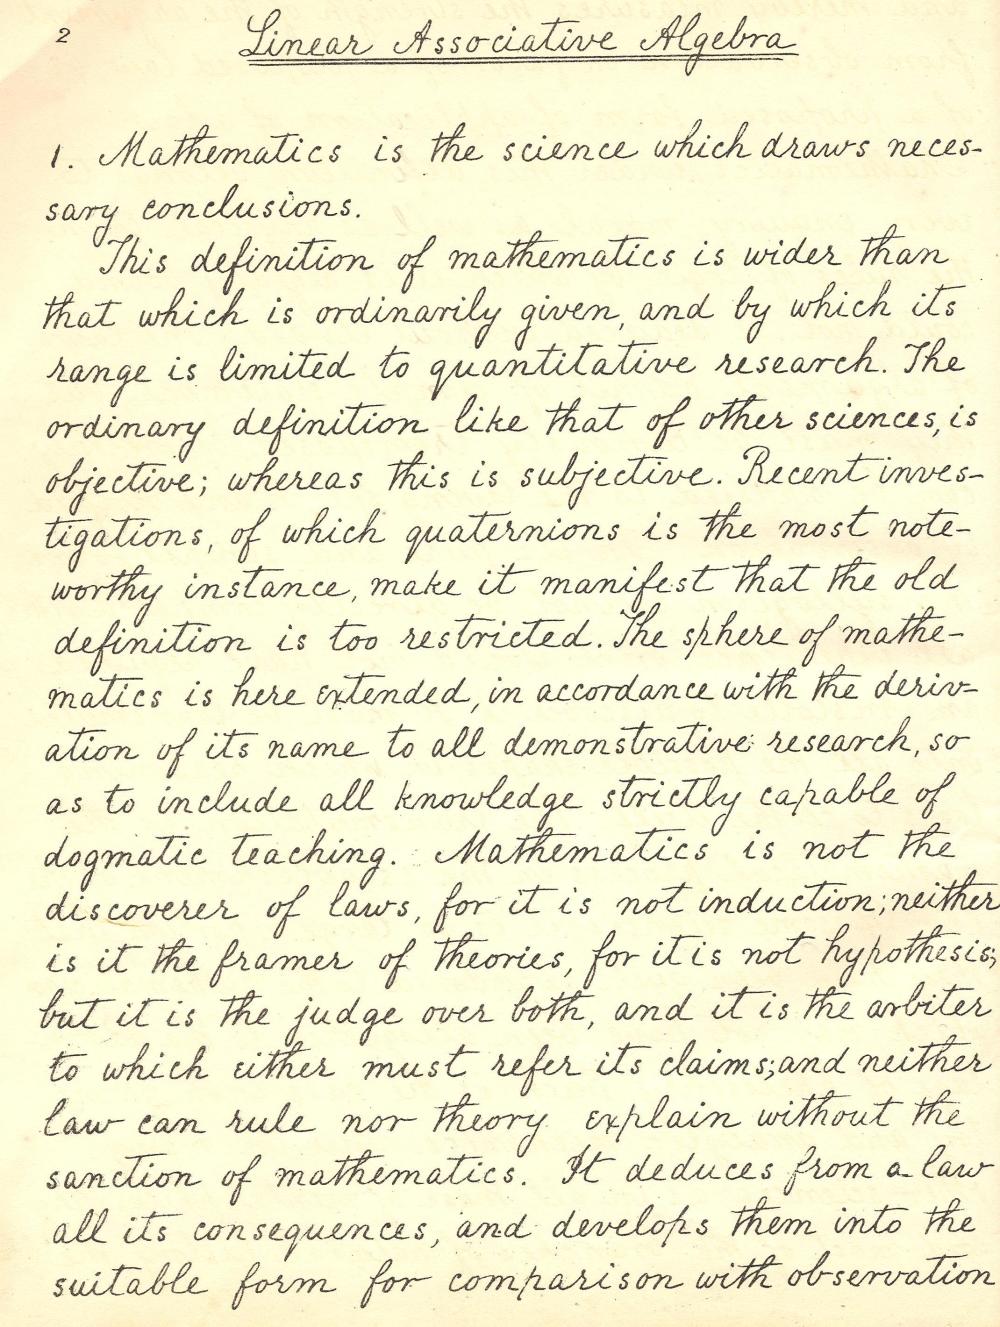 2
Linear Associative Algebra
1. Mathematics is the science which draws neces-
sary conclusions.
This definition of mathematics is wider than
that which is ordinarily given, and by which its
range is limited to quantitative research. The
ordinary definition like that of other sciences, is
objective; whereas this is subjective. Recent inves-
tigations, of which quaternions is the most note-
worthy instance, make it manifest that the old
definition is too restricted. The sphere of mathe-
matics is here extended, in accordance with the deriv-
ation of its name to all demonstrative research, so
as to include all knowledge strictly capable of
dogmatic teaching. Mathematics is not the
discoverer of laws, for it is not induction; neither
is it the framer of theories, for it is not hypothesis;
but it is the judge over both, and it is the arbiter
to which either must refer its claims; and neither
law can rule nor theory explain without the
sanction of mathematics. It deduces from a law
all its consequences, and develops them into the
suitable form for comparison with observation